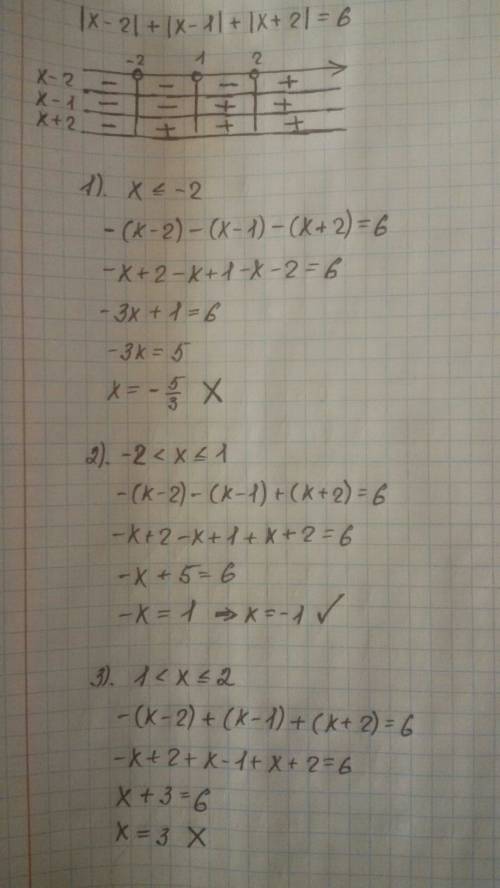 |x-2|+|x-1|+|x+2|=6
-2 1 2
x-2 - - - +
x-1 - - + +
x+2 - + + +
1). x ≤ -2
-(x-2)-(x-1)-(x+2)=6
-x+2-x+1-x-2=6
-3x+1=6
-3x=5
x=-5/3 X
2). -2<x≤1
-(x-2)-(x-1)+(x+2)=6
-x+2-x+1+x+2=6
-x+5=6
-x=1 ⇒x=-1 ✓
3). 1<x≤2
-(x-2)+(x-1)+(x+2)=6
-x+2+x-1+x+2=6
x+3=6
x=3 X